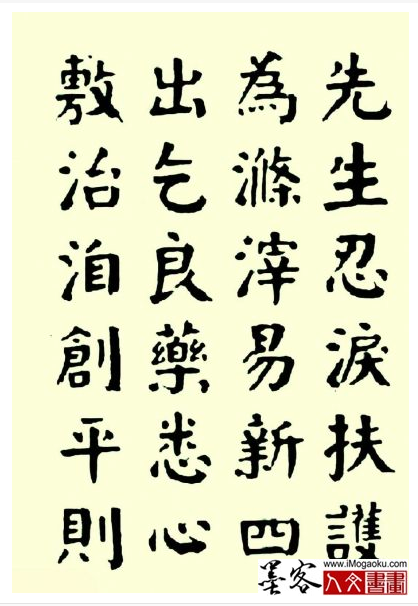 先生忍淚扶護
為滌滓易新四
出乞良藥悉心
敷治洎創平則
墨客
www.iMogaoku.com
人文書畫